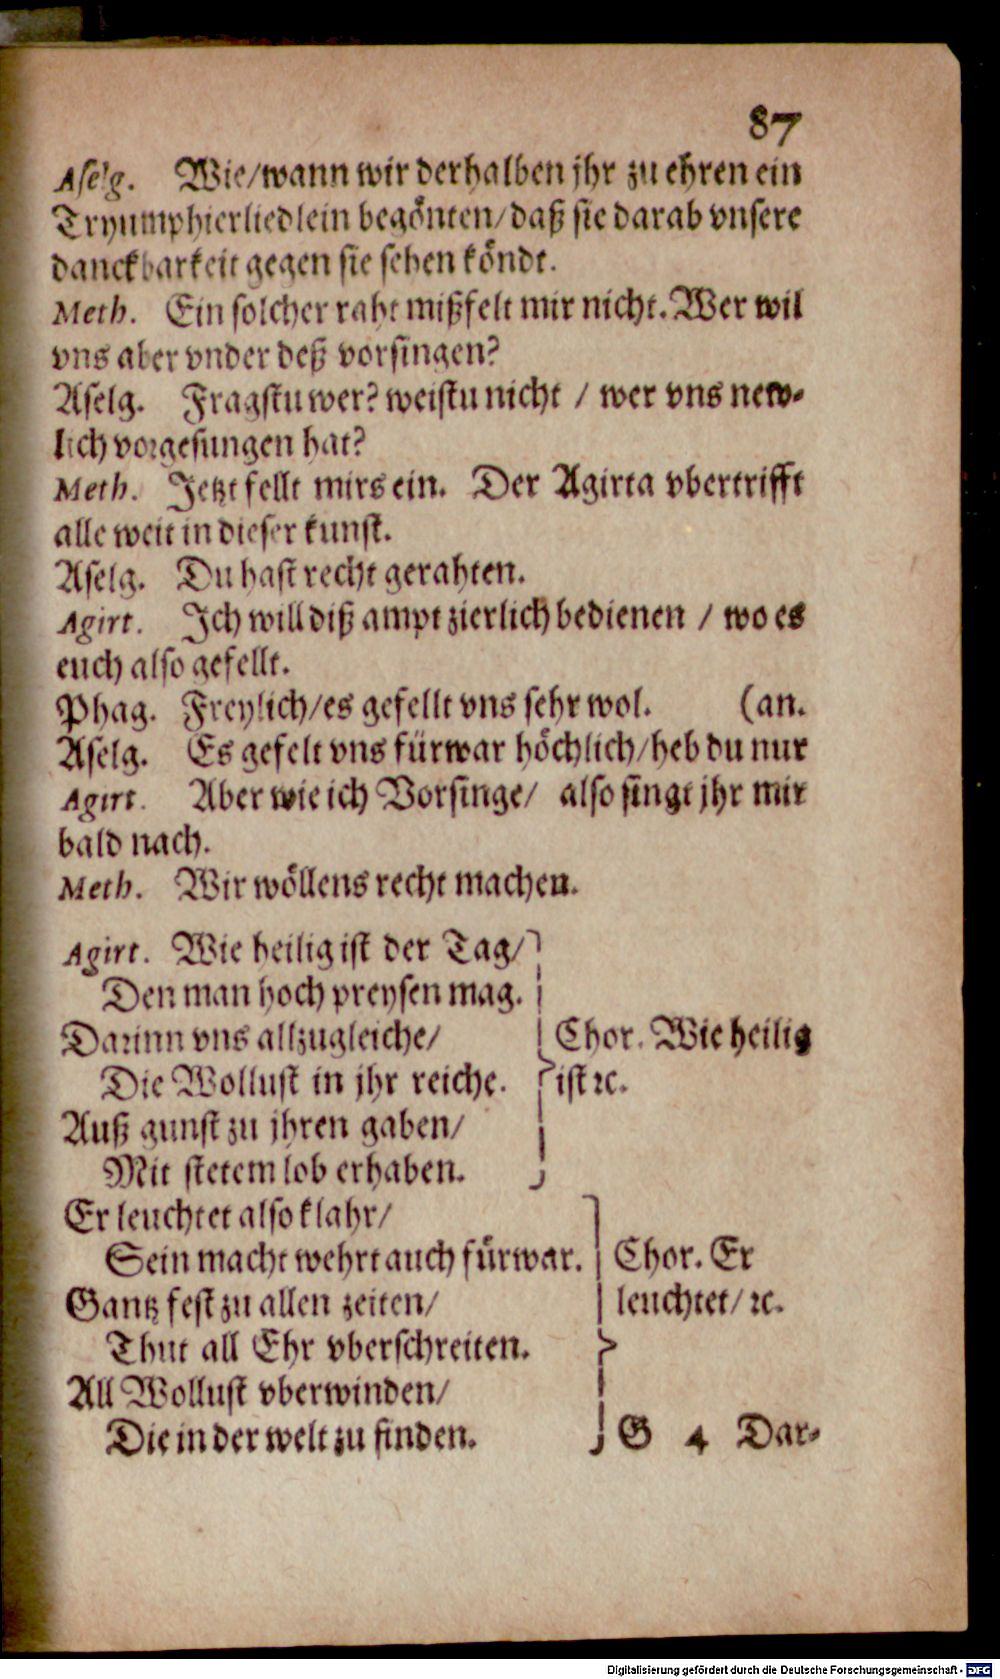 87
Aselg. Wie/wann wir derhalben jhr zu ehren ein
Tryumphierliedlein begönten/daß sie darab vnsere
danckbarkeit gegen sie sehen köndt.
Meth. Ein solcher raht mißfelt mir nicht. Wer wil
vns aber vnder deß vorsingen?
Aselg. Fragstu wer? weistu nicht / wer vns new-
lich vorgesungen hat?
Meth. Jetzt fellt mirs ein. Der Agirta vbertrifft
alle weit in dieser kunst.
Aselg. Du hast recht gerahten.
Agirt. Ich will diß ampt zierlich bedienen / wo es
euch also gefellt.
Phag. Freylich/es gefellt vns sehr wol. (an.
Aselg. Es gefelt vns fürwar höchlich/heb du nur
Agirt. Aber wie ich Vorsinge/ also singt jhr mir
bald nach.
Meth. Wir wöllens recht machen.
Agirt. Wie heilig ist der Tag/
Den man hoch preysen mag.
Darinn vns allzugleiche/
Die Wollust in jhr reiche.
Auß gunst zu jhren gaben/
Mit stetem lob erhaben.
Chor. Wie heilig
ist ꝛc.
Er leuchtet also klahr/
Sein macht wehrt auch fürwar.
Gantz fest zu allen zeiten/
Thut all Ehr vberschreiten.
All Wollust vberwinden/
Die in der welt zu finden.
Chor. Er
leuchtet/ ꝛc.
G 4 Dar-
Digitalisierung gefördert durch die Deutsche Forschungsgemeinschaft - DFG